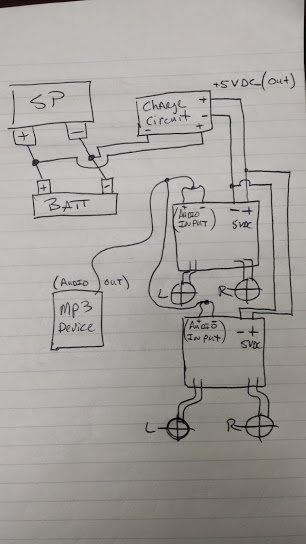 SP
+ -
+ -
BATT
+5VDC (out)
Charge
Circuit
+
-
- +
(Audio out)
MP3
Device
+ -
(Audio
Input)
- +
5VDC
L
R
+ -
(Audio
Input)
- +
5VDC
L
R